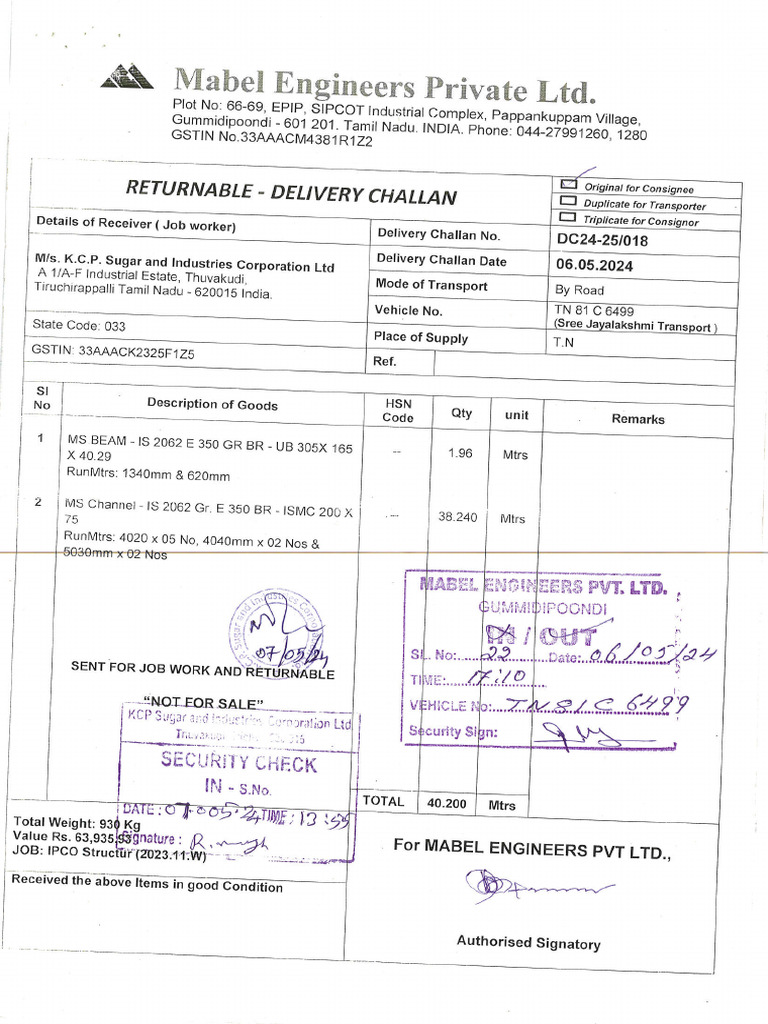 Mabel Engineers Private Ltd.
Plot No: 66-69, EPIP, SIPCOT Industrial Complex, Pappankuppam Village,
Gummidipoondi - 601 201. Tamil Nadu. INDIA. Phone: 044-27991260, 1280
GSTIN No.33AAACM4381R1Z2
RETURNABLE - DELIVERY CHALLAN
Original for Consignee
Duplicate for Transporter
Triplicate for Consignor
Details of Receiver ( Job worker)
M/s. K.C.P. Sugar and Industries Corporation Ltd
A 1/A-F Industrial Estate, Thuvakudi,
Tiruchirappalli Tamil Nadu - 620015 India.
State Code: 033
GSTIN: 33AAACK2325F1Z5
Delivery Challan No. DC24-25/018
Delivery Challan Date 06.05.2024
Mode of Transport By Road
Vehicle No. TN 81 C 6499
(Sree Jayalakshmi Transport )
Place of Supply T.N
Ref.
Sl No Description of Goods HSN Code Qty unit Remarks
1 MS BEAM - IS 2062 E 350 GR BR - UB 305X 165 -- 1.96 Mtrs
X 40.29
RunMtrs: 1340mm & 620mm
2 MS Channel - IS 2062 Gr. E 350 BR - ISMC 200 X --- 38.240 Mtrs
75
RunMtrs: 4020 x 05 No, 4040mm x 02 Nos &
5030mm x 02 Nos
07/05/24
MABEL ENGINEERS PVT. LTD.
GUMMIDIPOONDI
IN / OUT
SL. No: 22 Date: 06/05/24
TIME: 17:10
VEHICLE No: TN81C 6499
Security Sign:
SENT FOR JOB WORK AND RETURNABLE
“NOT FOR SALE”
KCP Sugar and Industries Corporation Ltd
SECURITY CHECK
IN - S.No.
DATE: 07-005-24 TIME: 13:55
Signature:
TOTAL 40.200 Mtrs
Total Weight: 930 Kg
Value Rs. 63,935.93
JOB: IPCO Structur (2023.11.W)
Received the above Items in good Condition
For MABEL ENGINEERS PVT LTD.,
Authorised Signatory